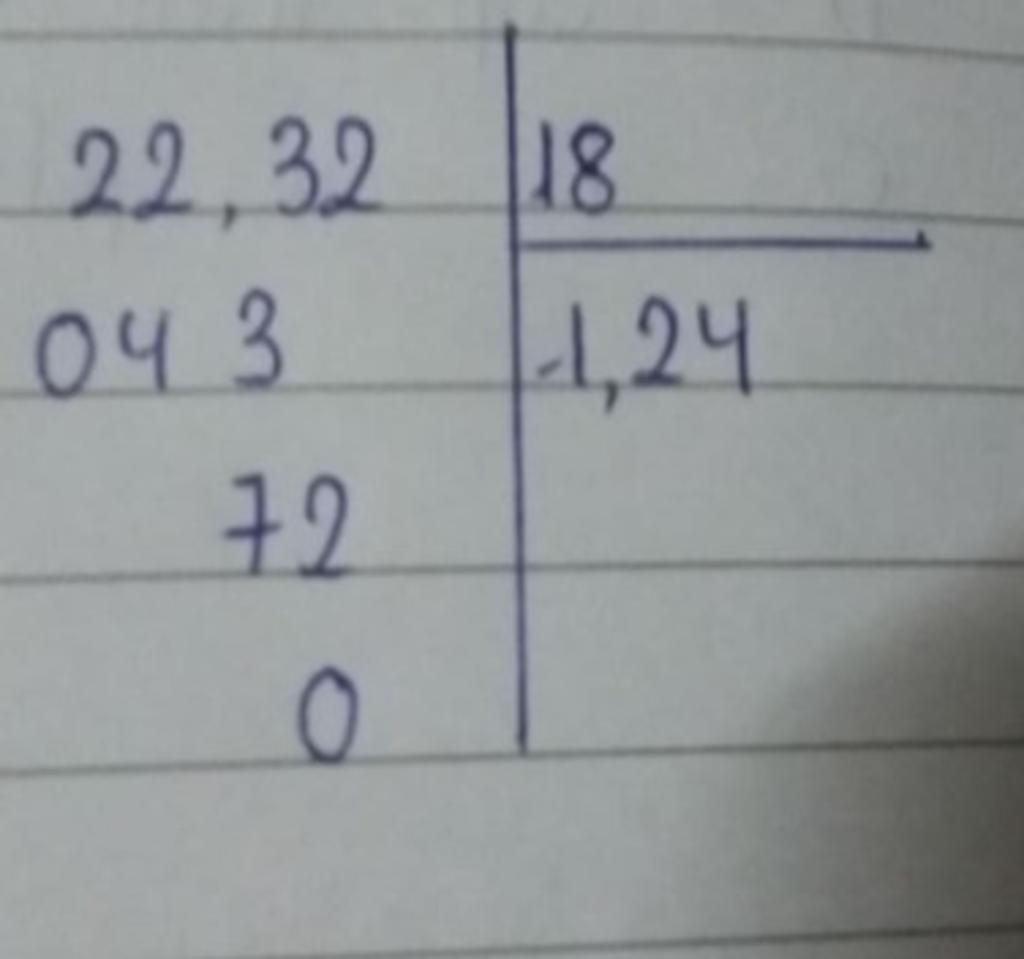 22,32 18
043 1,24
72
0